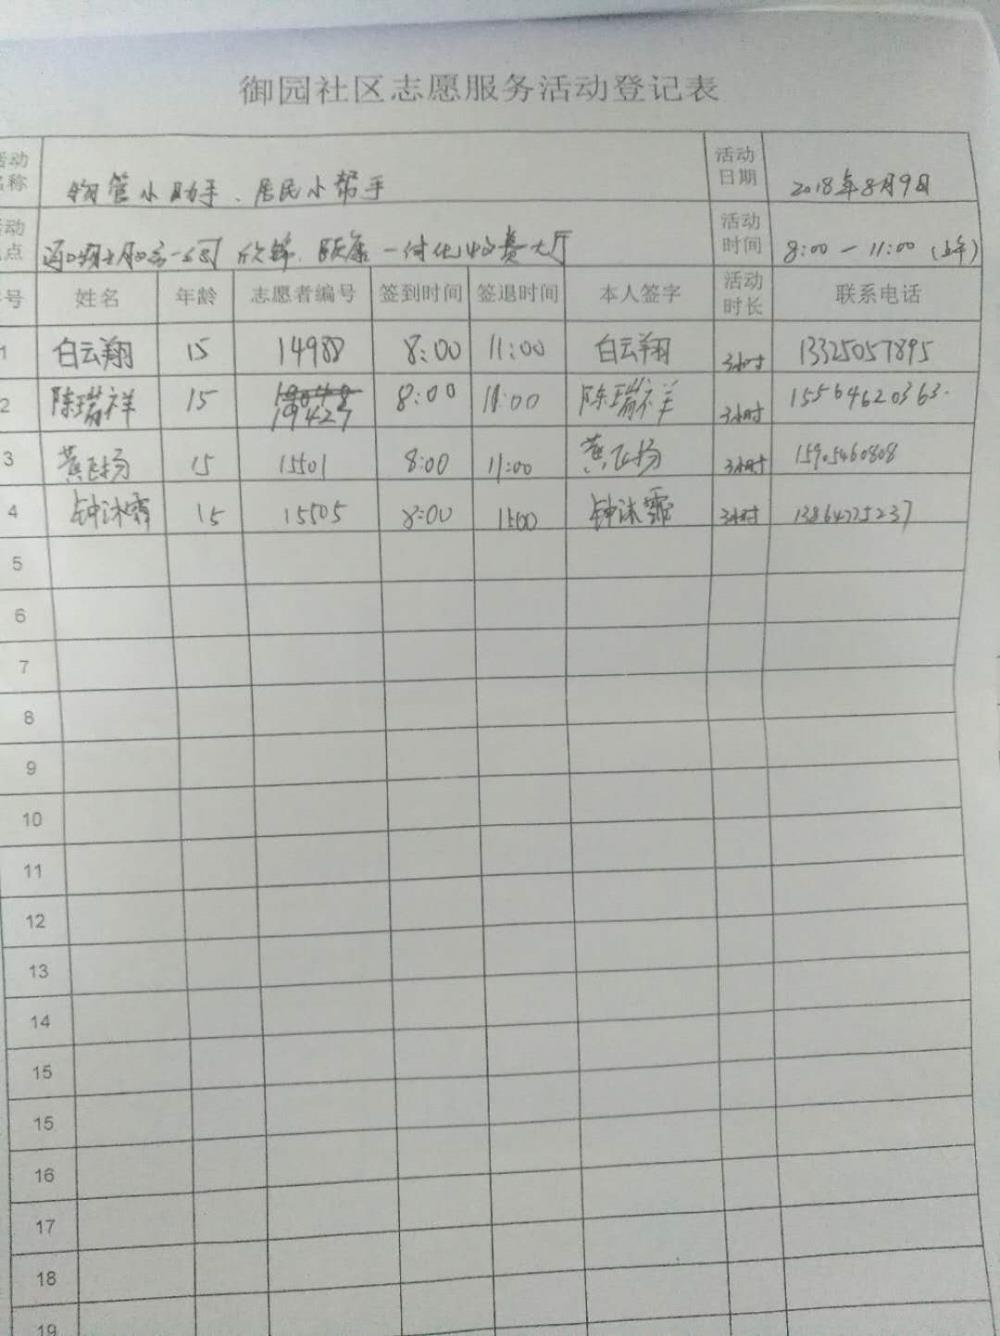 御园社区志愿服务活动登记表
活动名称 物管小助手、居民小帮手 活动日期 2018年8月9日
活动地点 欣锦、颐康一体化收费大厅 活动时间 8:00 — 11:00 (上午)
序号 姓名 年龄 志愿者编号 签到时间 签退时间 本人签字 活动时长 联系电话
1 白云翔 15 14988 8:00 11:00 白云翔 3小时 13325057895
2 陈瑞祥 15 19427 8:00 11:00 陈瑞祥 3小时 15564620363
3 黄飞扬 15 15501 8:00 11:00 黄飞扬 3小时 15905460808
4 钟沐霏 15 15505 8:00 11:00 钟沐霏 3小时
5
6
7
8
9
10
11
12
13
14
15
15
16
17
18
19